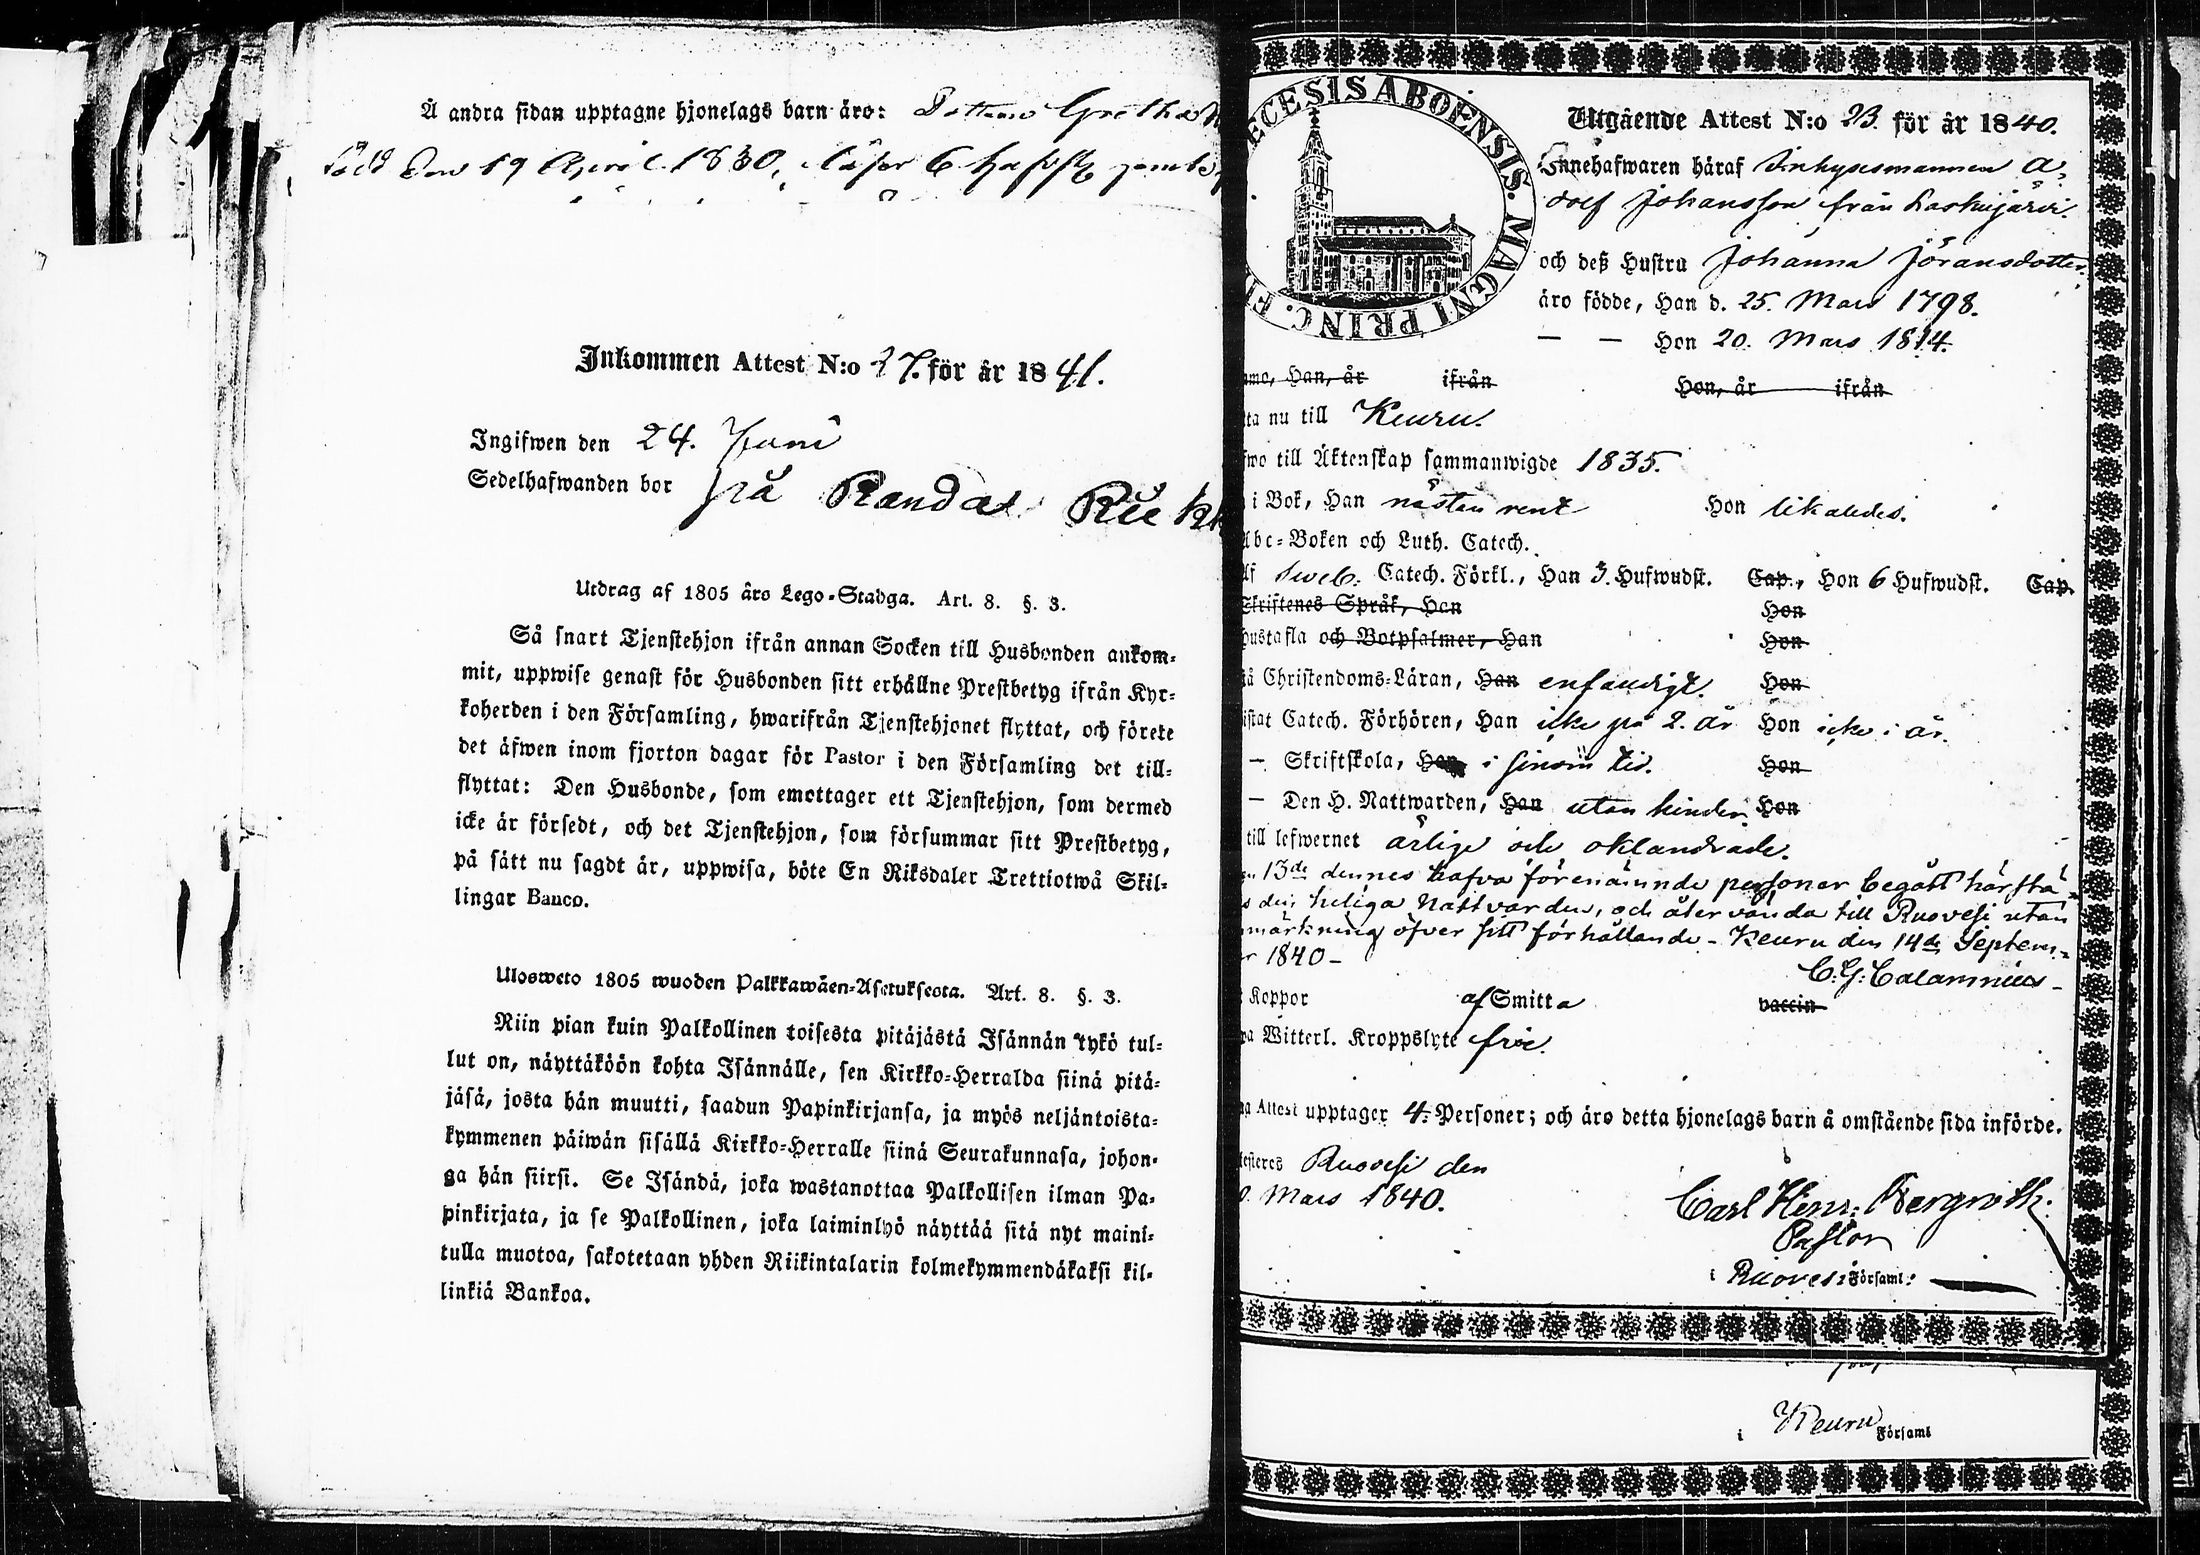 Å andra sidan upptagne hjonelags barn äro: Dottren Gretha
född den 19 April 1830, läser 6 hufvst
Inkommen Attest N:o 27. för år 1841.
Ingifwen den 24. Juni
Sedelhafwanden bor på Randa
Utdrag af 1805 års Lego-Stadga. Art. 8. §. 3.
Så snart Tjenstehjon ifrån annan Socken till Husbonden ankom-
mit, uppwise genast för Husbonden sitt erhållne Prestbetyg ifrån Kyr-
koherden i den Församling, hwarifrån Tjenstehjonet flyttat, och förete
det äfwen inom fjorton dagar för Pastor i den Församling det till-
flyttat: Den Husbonde, som emottager ett Tjenstehjon, som dermed
icke är försedt, och det Tjenstehjon, som försummar sitt Prestbetyg,
på sätt nu sagdt är, uppwisa, böte En Riksdaler Trettiotwå Skil-
lingar Banco.
Ulosweto 1805 wuoden Palkkawäen-Asetuksesta. Art. 8. §. 3.
Niin pian kuin Palkollinen toisesta pitäjästä Isännän tykö tul-
lut on, näyttäköön kohta Isännälle, sen Kirkko-Herralda siinä pitä-
jäsä, josta hän muutti, saadun Papinkirjansa, ja myös neljäntoista-
kymmenen päiwän sisällä Kirkko-Herralle siinä Seurakunnasa, johon-
ga hän siirsi. Se Isändä, joka wastanottaa Palkollisen ilman Pa-
pinkirjata, ja se Palkollinen, joka laiminlyö näyttää sitä nyt maini-
tulla muotoa, sakotetaan yhden Riikintalarin kolmekymmendäkaksi kil-
linkiä Bankoa.
ECESIS ABOENSIS. MAGNI PRINC. FI
Utgående Attest N:o 23. för år 1840.
Innehafwaren häraf Inhysesmannen A-
dolf Johansson från Kaskujärvi.
och deß Hustru Johanna Jöransdotter
äro födde, Han d. 25. Mars 1798.
— — Hon 20. Mars 1814.
mo, Han, år ifrån Hon, år ifrån
ta nu till Keuru.
fwo till Äktenskap sammanwigde 1835.
i Bok, Han nästan rent Hon likaledes.
Abc-Boken och Luth. Catech.
af Sveb. Catech. Förkl., Han 3. Hufwudst. Cap., Hon 6 Hufwudst. Cap.
Skriftenes Språk, Han Hon
Hustafla och Botpsalmer, Han Hon
å Christendoms-Läran, Han enfaldigt. Hon
istat Catech. Förhören, Han icke på 2. år Hon icke i år.
— Skriftskola, Han i sinom tid. Hon
— Den H. Nattwarden, Han utan hinder Hon
till lefwernet ärlige och oklandrade.
13de dennes hafva förenämnde personer begått härstä-
s den heliga Nattvarden, och återvända till Ruovesi utan
märkning öfver sitt förhållande - Keuru den 14de Septem-
r 1840 -
C. G. Calamnius -
Koppor af Smitta vaccin
Witterl. Kroppslyte frie.
na Attest upptager 4. Personer; och äro detta hjonelags barn å omstående sida införde.
Ruovesi den
Mars 1840.
Carl Henr. Bergroth.
Pastor
i Ruovesi Församl:
i Keuru Församl